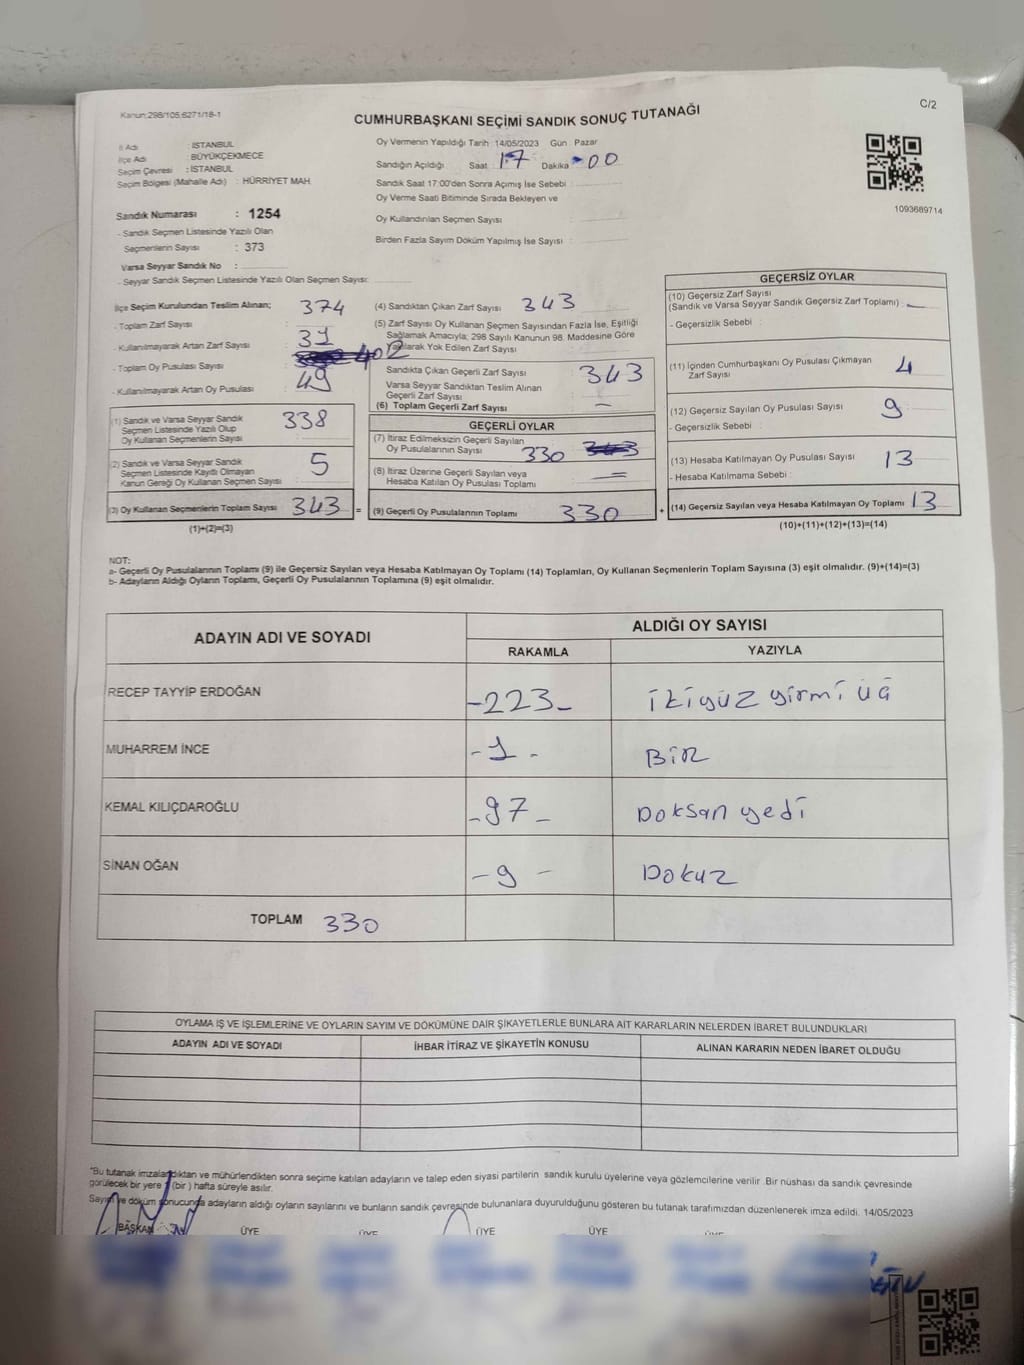 Kanun:298/105;6271/18-1
C/2
CUMHURBAŞKANI SEÇİMİ SANDIK SONUÇ TUTANAĞI
İl Adı : İSTANBUL
İlçe Adı : BÜYÜKÇEKMECE
Seçim Çevresi : İSTANBUL
Seçim Bölgesi (Mahalle Adı) : HÜRRİYET MAH.
Sandık Numarası : 1254
- Sandık Seçmen Listesinde Yazılı Olan
Seçmenlerin Sayısı : 373
Varsa Seyyar Sandık No :
- Seyyar Sandık Seçmen Listesinde Yazılı Olan Seçmen Sayısı:
Oy Vermenin Yapıldığı Tarih :14/05/2023 Gün : Pazar
Sandığın Açıldığı Saat : 17 Dakika : 00
Sandık Saat 17:00'den Sonra Açımış İse Sebebi :
Oy Verme Saati Bitiminde Sırada Bekleyen ve
Oy Kullandırılan Seçmen Sayısı :
Birden Fazla Sayım Döküm Yapılmış İse Sayısı :
1093689714
İlçe Seçim Kurulundan Teslim Alınan;
- Toplam Zarf Sayısı : 374
- Kullanılmayarak Artan Zarf Sayısı : 31
- Toplam Oy Pusulası Sayısı : 402
- Kullanılmayarak Artan Oy Pusulası : 49
(1) Sandık ve Varsa Seyyar Sandık
Seçmen Listesinde Yazılı Olup
Oy Kullanan Seçmenlerin Sayısı : 338
(2) Sandık ve Varsa Seyyar Sandık
Seçmen Listesinde Kayıtlı Olmayan
Kanun Gereği Oy Kullanan Seçmen Sayısı : 5
(3) Oy Kullanan Seçmenlerin Toplam Sayısı : 343 =
(1)+(2)=(3)
(4) Sandıktan Çıkan Zarf Sayısı : 343
(5) Zarf Sayısı Oy Kullanan Seçmen Sayısından Fazla İse, Eşitliği
Sağlamak Amacıyla; 298 Sayılı Kanunun 98. Maddesine Göre
Yakılarak Yok Edilen Zarf Sayısı :
Sandıkta Çıkan Geçerli Zarf Sayısı : 343
Varsa Seyyar Sandıktan Teslim Alınan
Geçerli Zarf Sayısı :
(6) Toplam Geçerli Zarf Sayısı : –
GEÇERLİ OYLAR
(7) İtiraz Edilmeksizin Geçerli Sayılan
Oy Pusulalarının Sayısı : 330 343
(8) İtiraz Üzerine Geçerli Sayılan veya
Hesaba Katılan Oy Pusulası Toplamı : =
(9) Geçerli Oy Pusulalarının Toplamı : 330 +
GEÇERSİZ OYLAR
(10) Geçersiz Zarf Sayısı
(Sandık ve Varsa Seyyar Sandık Geçersiz Zarf Toplamı) : –
- Geçersizlik Sebebi :
(11) İçinden Cumhurbaşkanı Oy Pusulası Çıkmayan
Zarf Sayısı : 4
(12) Geçersiz Sayılan Oy Pusulası Sayısı : 9
- Geçersizlik Sebebi :
(13) Hesaba Katılmayan Oy Pusulası Sayısı : 13
- Hesaba Katılmama Sebebi :
(14) Geçersiz Sayılan veya Hesaba Katılmayan Oy Toplamı : 13
(10)+(11)+(12)+(13)=(14)
NOT:
a- Geçerli Oy Pusulalarının Toplamı (9) ile Geçersiz Sayılan veya Hesaba Katılmayan Oy Toplamı (14) Toplamları, Oy Kullanan Seçmenlerin Toplam Sayısına (3) eşit olmalıdır. (9)+(14)=(3)
b- Adayların Aldığı Oyların Toplamı, Geçerli Oy Pusulalarının Toplamına (9) eşit olmalıdır.
ADAYIN ADI VE SOYADI
ALDIĞI OY SAYISI
RAKAMLA YAZIYLA
RECEP TAYYİP ERDOĞAN -223- ikiyüz yirmi üç
MUHARREM İNCE -1- BiR
KEMAL KILIÇDAROĞLU -97- Doksan yedi
SİNAN OĞAN -9- Dokuz
TOPLAM 330
OYLAMA İŞ VE İŞLEMLERİNE VE OYLARIN SAYIM VE DÖKÜMÜNE DAİR ŞİKAYETLERLE BUNLARA AİT KARARLARIN NELERDEN İBARET BULUNDUKLARI
ADAYIN ADI VE SOYADI İHBAR İTİRAZ VE ŞİKAYETİN KONUSU ALINAN KARARIN NEDEN İBARET OLDUĞU
*Bu tutanak imzalandıktan ve mühürlendikten sonra seçime katılan adayların ve talep eden siyasi partilerin sandık kurulu üyelerine veya gözlemcilerine verilir .Bir nüshası da sandık çevresinde
görülecek bir yere 1 (bir ) hafta süreyle asılır.
Sayım ve döküm sonucunda adayların aldığı oyların sayılarını ve bunların sandık çevresinde bulunanlara duyurulduğunu gösteren bu tutanak tarafımızdan düzenlenerek imza edildi. 14/05/2023
BAŞKAN ÜYE ÜYE ÜYE ÜYE ÜYE